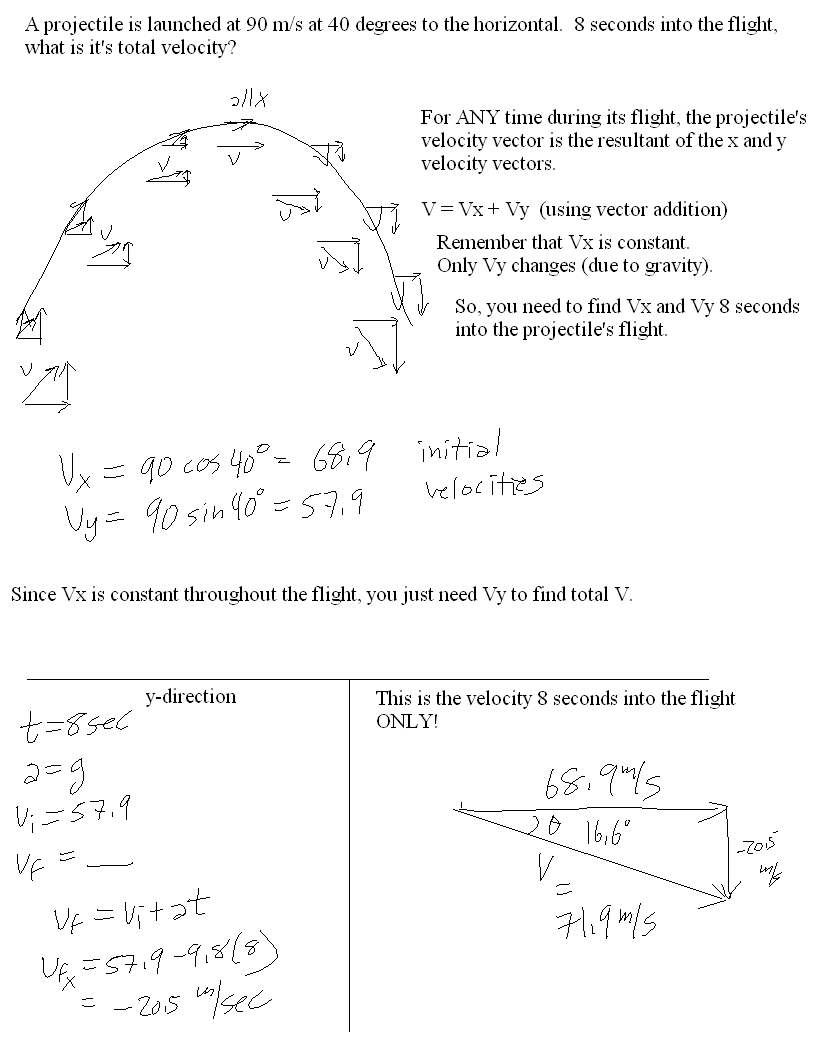 A projectile is launched at 90 m/s at 40 degrees to the horizontal.  8 seconds into the flight,
what is it's total velocity?
all x
For ANY time during its flight, the projectile's
velocity vector is the resultant of the x and y
velocity vectors.
V = Vx + Vy  (using vector addition)
Remember that Vx is constant.
Only Vy changes (due to gravity).
So, you need to find Vx and Vy 8 seconds
into the projectile's flight.
V
V
V
V
V
V
V
Vx = 90 cos 40° = 68.9
initial
Vy = 90 sin 40° = 57.9
velocities
Since Vx is constant throughout the flight, you just need Vy to find total V.
y-direction
t=8sec
a=g
Vi=57.9
Vf = __
Vf = Vi+at
Vfx =57.9-9.8(8)
= -20.5 m/sec
This is the velocity 8 seconds into the flight
ONLY!
68.9 m/s
θ 16.6°
-20.5
m/s
V
=
71.9 m/s